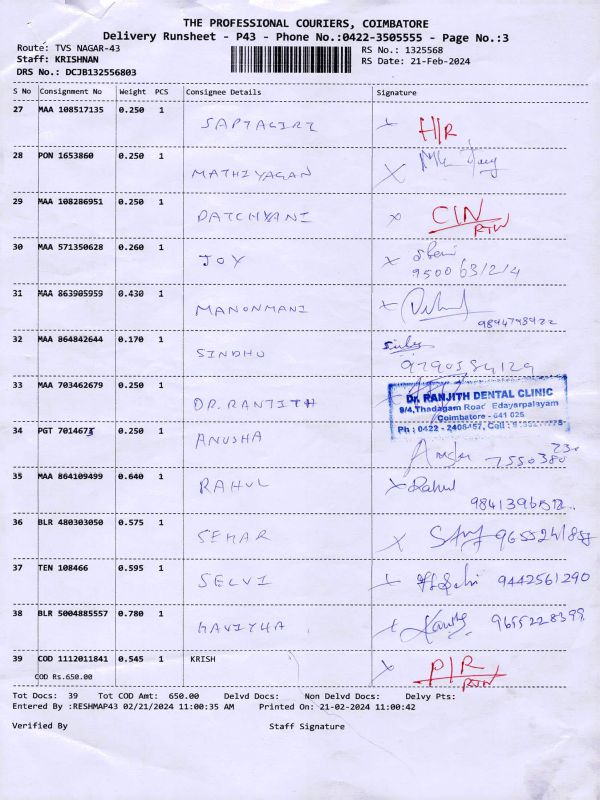 THE PROFESSIONAL COURIERS, COIMBATORE
Delivery Runsheet - P43 - Phone No.:0422-3505555 - Page No.:3
Route: TVS NAGAR-43 RS No.: 1325568
Staff: KRISHNAN RS Date: 21-Feb-2024
DRS No.: DCJB132556803
S No Consignment No Weight PCS Consignee Details Signature
27 MAA 108517135 0.250 1
SAPTAGIRI H/R
28 PON 1653860 0.250 1
MATHIYAGAN
29 MAA 108286951 0.250 1
PATCHYANI C/N
RTN
30 MAA 571350628 0.260 1
JOY
950063/2/4
31 MAA 863905959 0.430 1
MANONMANI
9894793922
32 MAA 864842644 0.170 1
SINDHU
9790584129
33 MAA 703462679 0.250 1
Dr. RANJITH DENTAL CLINIC
9/4,Thadagam Road Edayarpalayam
DR. RANJITH
Coimbatore - 641 025
34 PGT 701467 0.250 1
Ph : 0422 - 2408457, Cell :
ANUSHA
7550380
230
35 MAA 864109499 0.640 1
RAHUL Rahul
36 BLR 480303050 0.575 1
SEHAR
37 TEN 108466 0.595 1
SELVI 9442561290
38 BLR 5004885557 0.780 1
KAVITHA 9655228399
39 COD 1112011841 0.545 1 KRISH P/R
RTN
COD Rs.650.00
Tot Docs: 39 Tot COD Amt: 650.00 Delvd Docs: Non Delvd Docs: Delvy Pts:
Entered By :RESHMAP43 02/21/2024 11:00:35 AM Printed On: 21-02-2024 11:00:42
Verified By Staff Signature